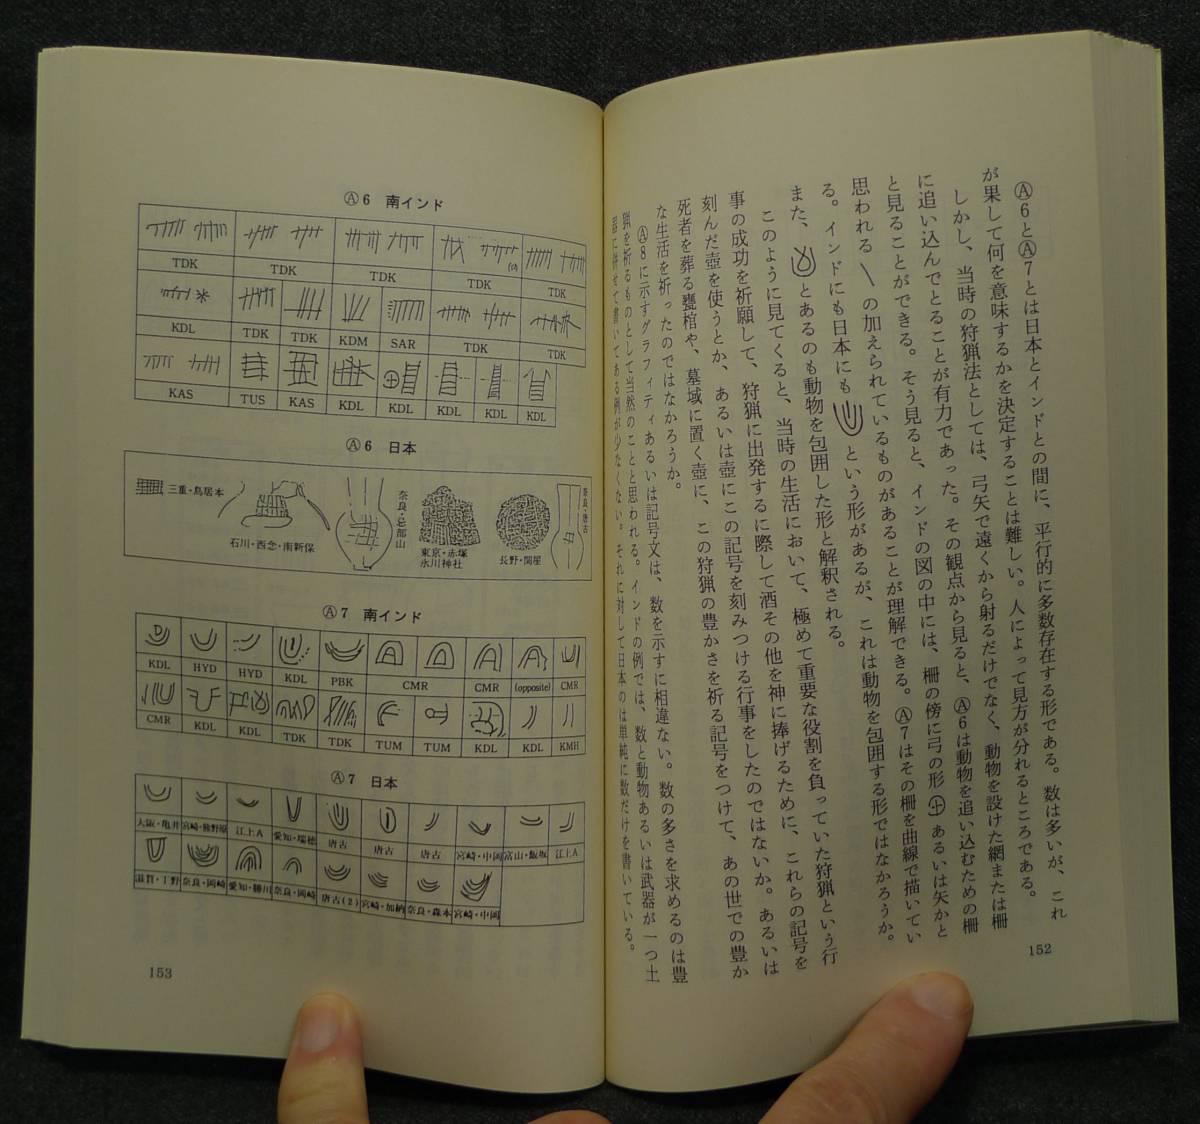 Ⓐ6とⒶ7とは日本とインドとの間に、平行的に多数存在する形である。数は多いが、これ
が果して何を意味するかを決定することは難しい。人によって見方が分れるところである。
しかし、当時の狩猟法としては、弓矢で遠くから射るだけでなく、動物を設けた網または柵
に追い込んでとることが有力であった。その観点から見ると、Ⓐ6は動物を追い込むための柵
と見ることができる。そう見ると、インドの図の中には、柵の傍に弓の形あるいは矢かと
思われるの加えられているものがあることが理解できる。Ⓐ7はその柵を曲線で描いてい
る。インドにも日本にもという形があるが、これは動物を包囲する形ではなかろうか。
また、とあるのも動物を包囲した形と解釈される。
このように見てくると、当時の生活において、極めて重要な役割を負っていた狩猟という行
事の成功を祈願して、狩猟に出発するに際して酒その他を神に捧げるために、これらの記号を
刻んだ壺を使うとか、あるいは壺にこの記号を刻みつける行事をしたのではないか。あるいは
死者を葬る甕棺や、墓域に置く壺に、この狩猟の豊かさを祈る記号をつけて、あの世での豊か
な生活を祈ったのではなかろうか。
Ⓐ8に示すグラフィティあるいは記号文は、数を示すに相違ない。数の多さを求めるのは豊
猟を祈るものとして当然のことと思われる。インドの例では、数と動物あるいは武器が一つ土
器に併せて書いてある例が少なくない。それに対して日本のは単純に数だけを書いている。
152
Ⓐ6 南インド
TDK TDK TDK TDK TDK
KDL TDK TDK KDM SAR TDK TDK
KAS TUS KAS KDL KDL KDL KDL KDL
Ⓐ6 日本
三重・鳥居本
石川・西念・南新保
奈良・忌部山
東京・赤塚
氷川神社
長野・関屋
奈良・唐古
Ⓐ7 南インド
KDL HYD HYD KDL PBK CMR CMR (opposite) CMR
CMR KDL KDL TDK TDK TUM TUM KDL KDL KMH
Ⓐ7 日本
大阪・亀井 宮崎・熊野原 江上A 愛知・瑞穂 唐古 唐古 唐古 宮崎・中岡 富山・飯坂 江上A
滋賀・丁野 奈良・岡崎 愛知・勝川 奈良・岡崎 唐古(2) 宮崎・加納 奈良・森本 宮崎・中岡
153